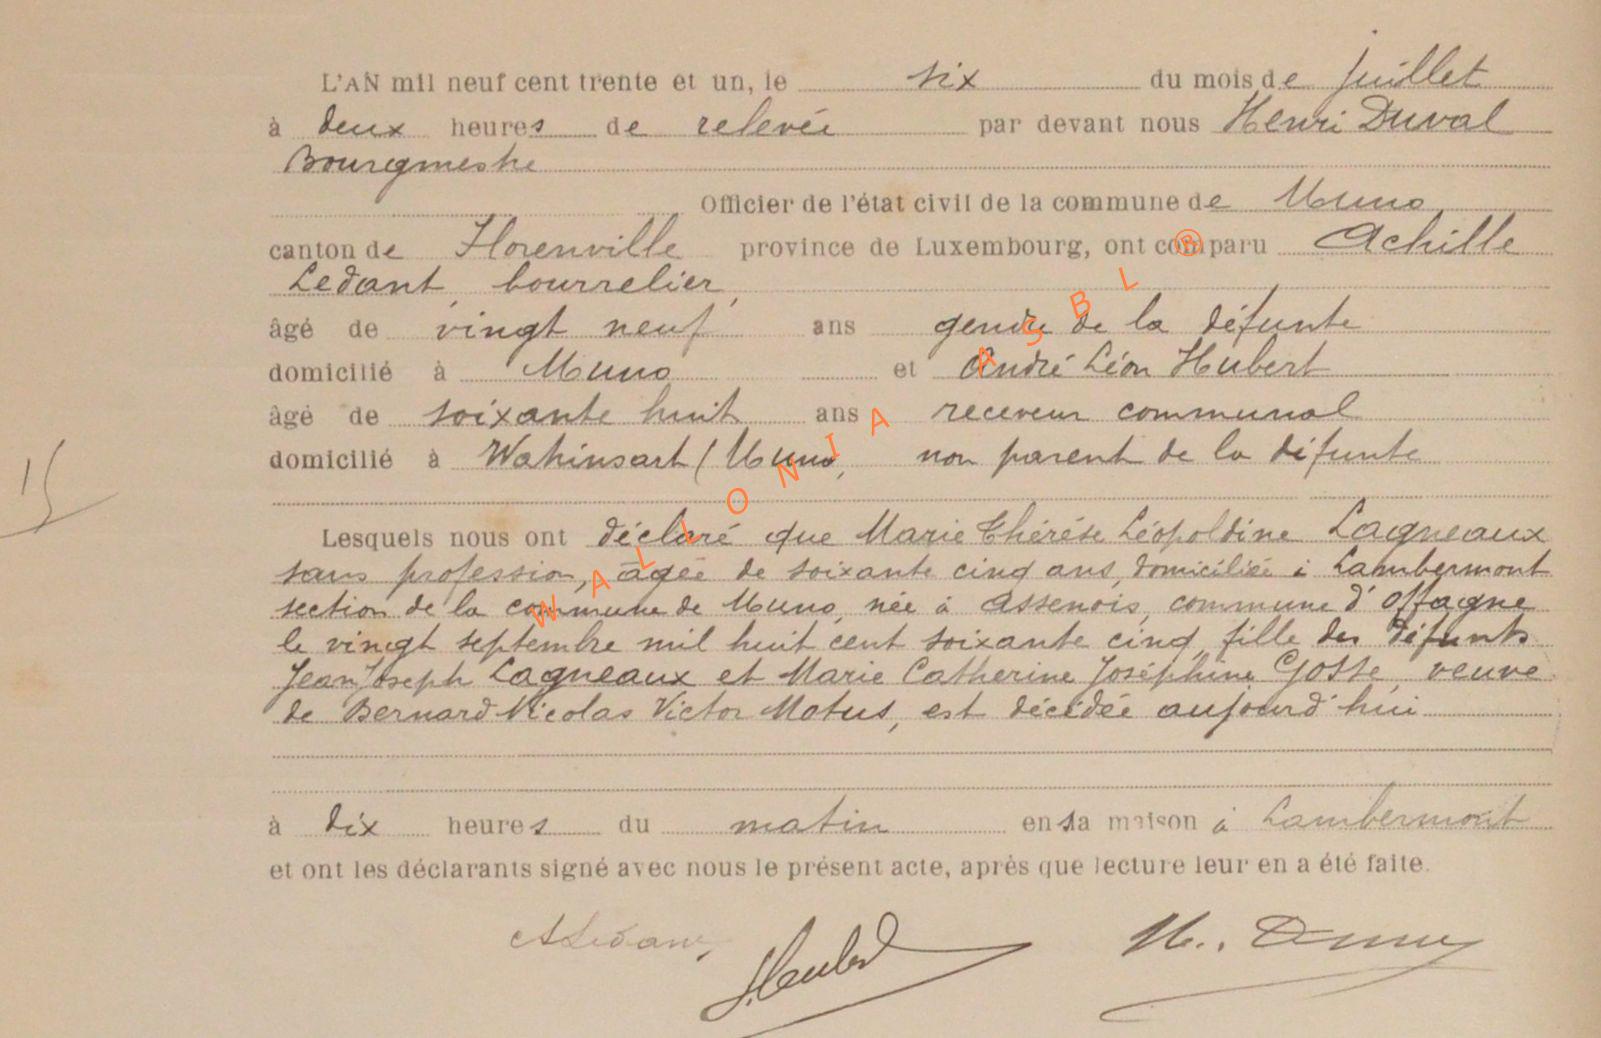 L'AN mil neuf cent trente et un, le six du mois de juillet
à deux heures de relevée par devant nous Henri Duval
Bourgmestre
Officier de l'état civil de la commune de Muno
canton de Florenville province de Luxembourg, ont comparu Achille
Ledant, bourrelier,
âgé de vingt neuf ans gendre de la défunte
domicilié à Muno et André Léon Hubert
âgé de soixante huit ans receveur communal
domicilié à Watrinsart (Muno, non parent de la défunte
15
Lesquels nous ont déclaré que Marie Thérèse Léopoldine Lagneaux
sans profession, âgée de soixante cinq ans, domiciliée à Lambermont
section de la commune de Muno, née à Assenois, commune d'Offagne
le vingt septembre mil huit cent soixante cinq, fille des défunts
Jean Joseph Lagneaux et Marie Catherine Joséphine Gosse, veuve
de Bernard Nicolas Victor Motus, est décédée aujourd'hui
à dix heures du matin en sa maison à Lambermont
et ont les déclarants signé avec nous le présent acte, après que lecture leur en a été faite.
ALedant, Hubert H. Duval
WALLONIA ASBL ®